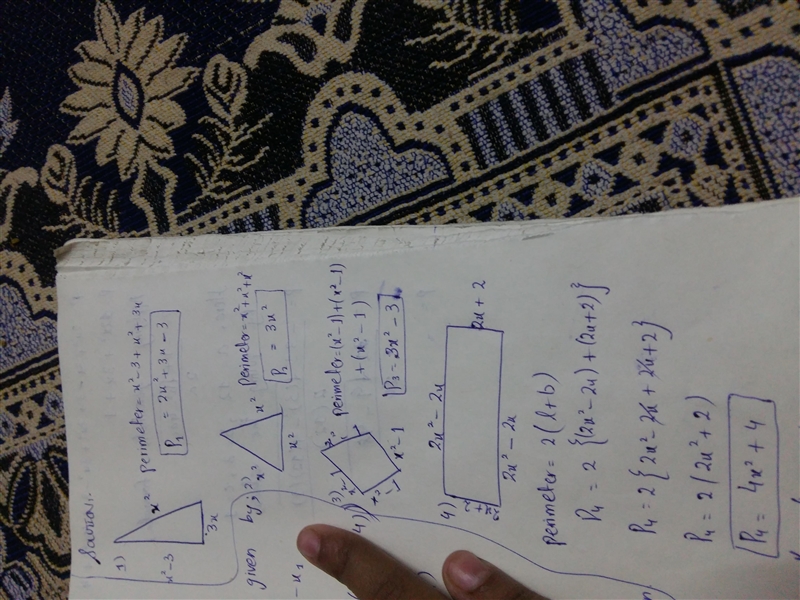 Solution:
1)
x²-3
x²
3x
perimeter = x²-3 + x² + 3x
P₁ = 2x² + 3x - 3
given by,
2)
x²
x²
x²
perimeter = x²+x²+x²
P₂ = 3x²
- x₁
3)
x²-1
perimeter = (x²-1)+(x²-1)
+ (x²-1)
P₃ = 3x² - 3
4)
2x² - 2x
2x + 2
2x² - 2x
perimeter = 2(l+b)
P₄ = 2 {(2x²-2x) + (2x+2)}
P₄ = 2{2x²-2x + 2x+2}
P₄ = 2(2x²+2)
P₄ = 4x² + 4